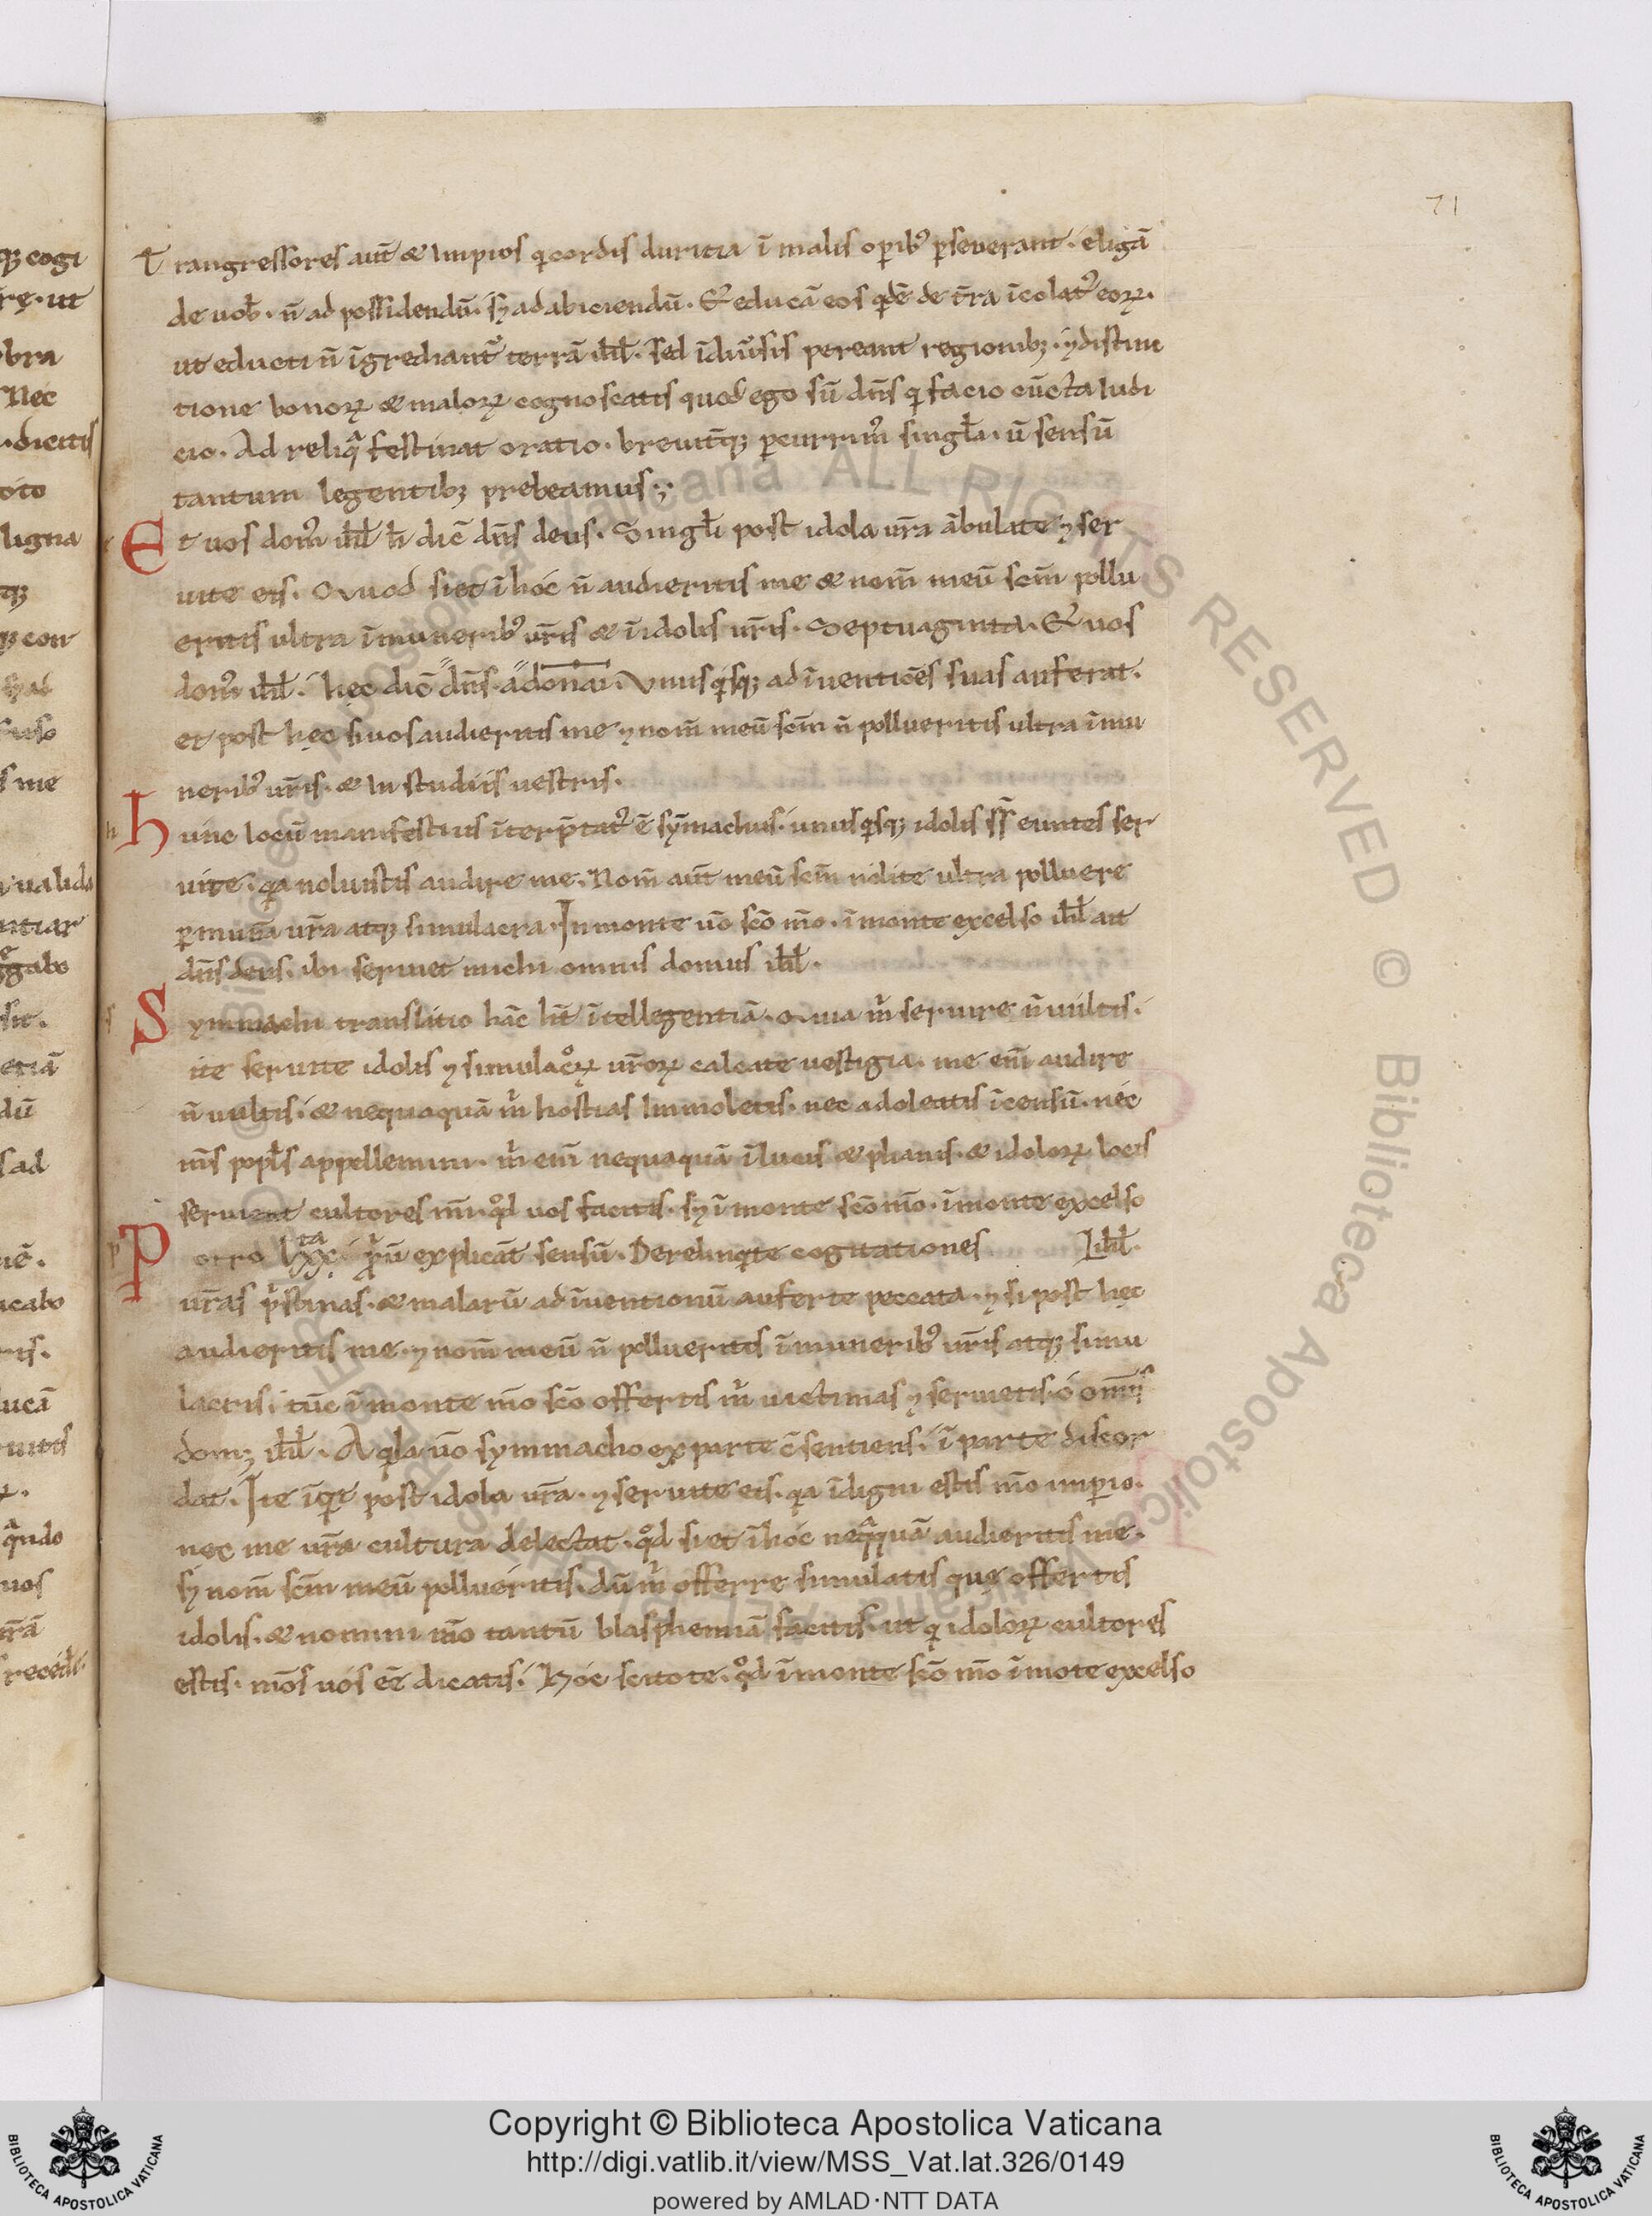 71
Trangressores aut̄ & Impios qi cordis duritia ī malis operib; perseverant. eligā
de vob̄. n̄ ad possidendū. s; ad abiciendū. Et educā eos qdē de t̄ra īcolat' eoꝝ.
ut educti n̄ īgrediant' terrā isrł. Sed ī diūsis pereant regionib;. ⁊ distinc
tione bonoꝝ & maloꝝ cognoscatis quod ego sū dn̄s qi facio cūcta Iudi
cio. Ad reliqa festinat oratio. brevit̄q; pcurrim' singła. ū sensū
tantum legentib; prebeamus;
Et vos dom' isrł h̄ dic̄ dn̄s deus. Singłi post idola vr̄a ābulate ⁊ ser
vite eis. Quod si et ī hoc n̄ audieritis me & nom̄ meū scm̄ pollu
eritis ultra ī munerib' vr̄is & ī idolis vr̄is. Septuaginta. Et vos
dom' isrł. hęc dic̄ dn̄s. adonai. Unusqisq; adīventiōes suas auferat.
et post hęc si vos audieritis me ⁊ nom̄ meū scm̄ n̄ pollueritis ultra ī mu
nerib' vr̄is. & In studiis vestris.
hunc locū manifestius īterp̄tat' ē sȳmachus. unusqisq; idolis ss̄ euntes ser
vite. qa noluistis audire me. Nom̄ aut̄ meū scm̄ nolite ultra polluere
p munera vr̄a atq; simulacra. In monte ūo scō mō. ī monte excelso isrł ait
dn̄s deus. ibi serviet michi omnis domus isrł.
Symmachi translatio hāc ht̄ ītellegentiā. Quia m̄ servire n̄ vultis.
ite servite idolis ⁊ simulacroꝝ vr̄oꝝ calcate vestigia. me enī audire
n̄ vultis. & nequaquā m̄ hostias Immoletis. nec adoleatis īcensū. nec
m̄s popłs appellemini. m̄ enī nequaquā ī lucis & phanis. & idoloꝝ locis
servient cultores mī. qod vos facitis. s; ī monte scō mō. ī monte excelso
isrł.
Porro lxx ta. p̄rū explicāt sensū. Derelinqte cogitationes
vr̄as pistinas. & malarū adīventionū auferte peccata. ⁊ si post hęc
audieritis me. ⁊ nom̄ meū n̄ pollueritis ī munerib' vr̄is atq; simu
lacris. tūc ī monte mō scō offertis m̄ victimas ⁊ servietis. o omnis
dom; isrł. Aqila ūo symmacho ex parte c̄sentiens. ī parte discor
dat. Ite īqit post idola vr̄a. ⁊ servite eis. qa īdigni estis mō imperio.
nec me vr̄a cultura delectat. qod si et ī hoc neqaquā audieritis me.
s; nom̄ scm̄ meū pollueritis. dū m̄ offerre simulatis que offertis
idolis. & nomini mō tantū blasphemiā facitis. ut qi idoloꝝ cultores
estis. mōs vos eē dicatis. Hoc scitote. qod ī monte scō mō ī mote excelso
Copyright © Biblioteca Apostolica Vaticana
http://digi.vatlib.it/view/MSS_Vat.lat.326/0149
powered by AMLAD·NTT DATA